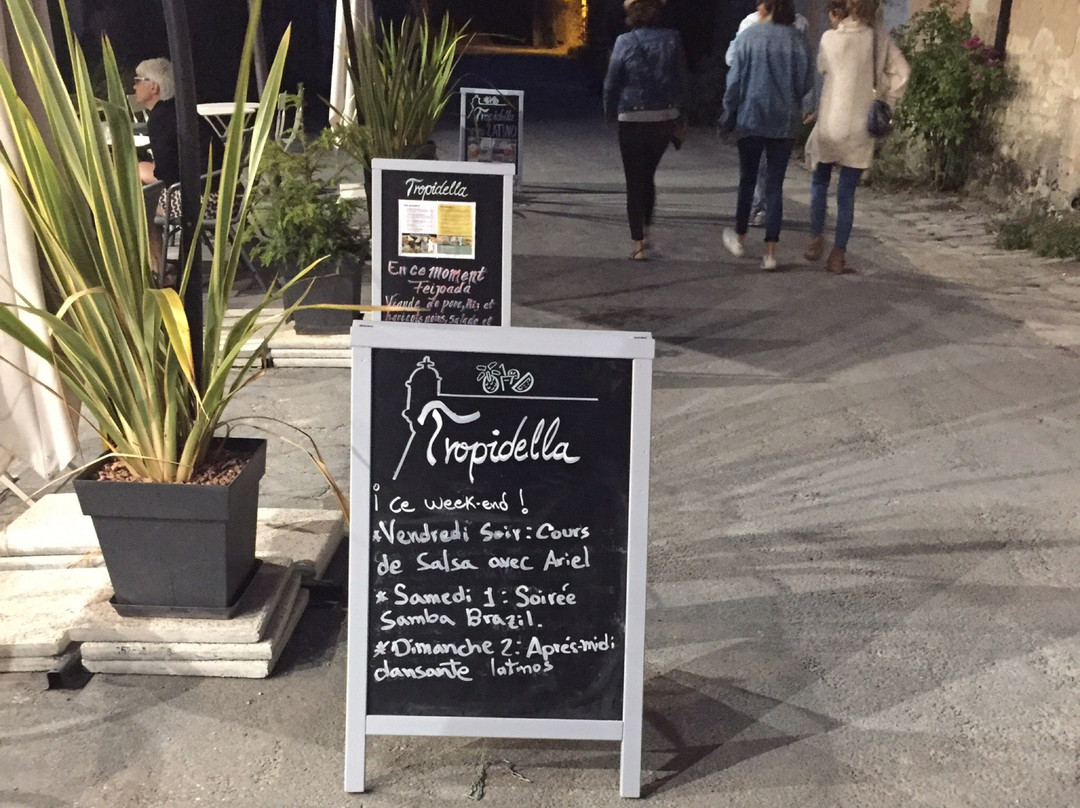 Tropidella
LATINO
Tropidella
En ce moment
Feijoada
Viande de porc, Riz et
haricots noirs, Salade et
Tropidella
¡ Ce week-end !
*Vendredi Soir : Cours
de Salsa avec Ariel
* Samedi 1 : Soirée
Samba Brazil.
*Dimanche 2 : Aprés-midi
dansante latinos